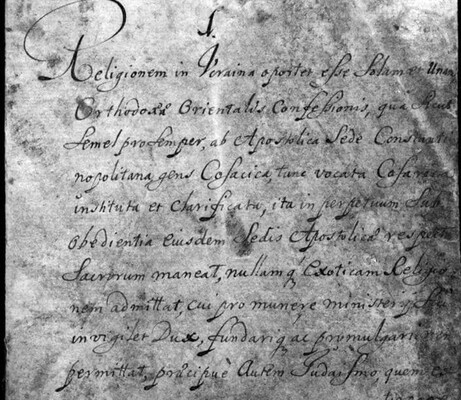 1.
Religionem in Vcraina oportet esse Solam et Unam
Orthodoxæ Orientalis Confessionis, qua Sicut
Semel pro Semper, ab Apostolica Sede Constanti
nopolitana gens Cosacica, tunc vocata Cosarica
instituta et clarificata, ita in perpetuum Sub
obedientia eiusdem Sedis Apostolicæ respectu
Sacrorum maneat, nullamq́ Exoticam Religio
nem admittat, cui pro munere ministerij Sui
invigilet Dux, fundariq́ ac promulgari non
permittat, præcipuè Autem Judaismo, quem